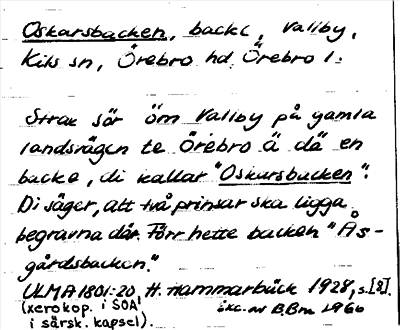 Oskarsbacken, backe, Vallby,
Kils sn, Örebro hd, Örebro l.
Strax sör öm Vallby på gamla
landsvägen te Örebro ä dä en
backe, di kallar "Oskarsbacken".
Di säger, att två prinsar ska ligga
begravna där. Förr hette backen "Ås-
gårdsbacken."
ULMA 1801:20 H. Hammarbäck 1928, s.[8].
(xerokop. i SOA
i särsk. kapsel). exc. av B.Bm 1966